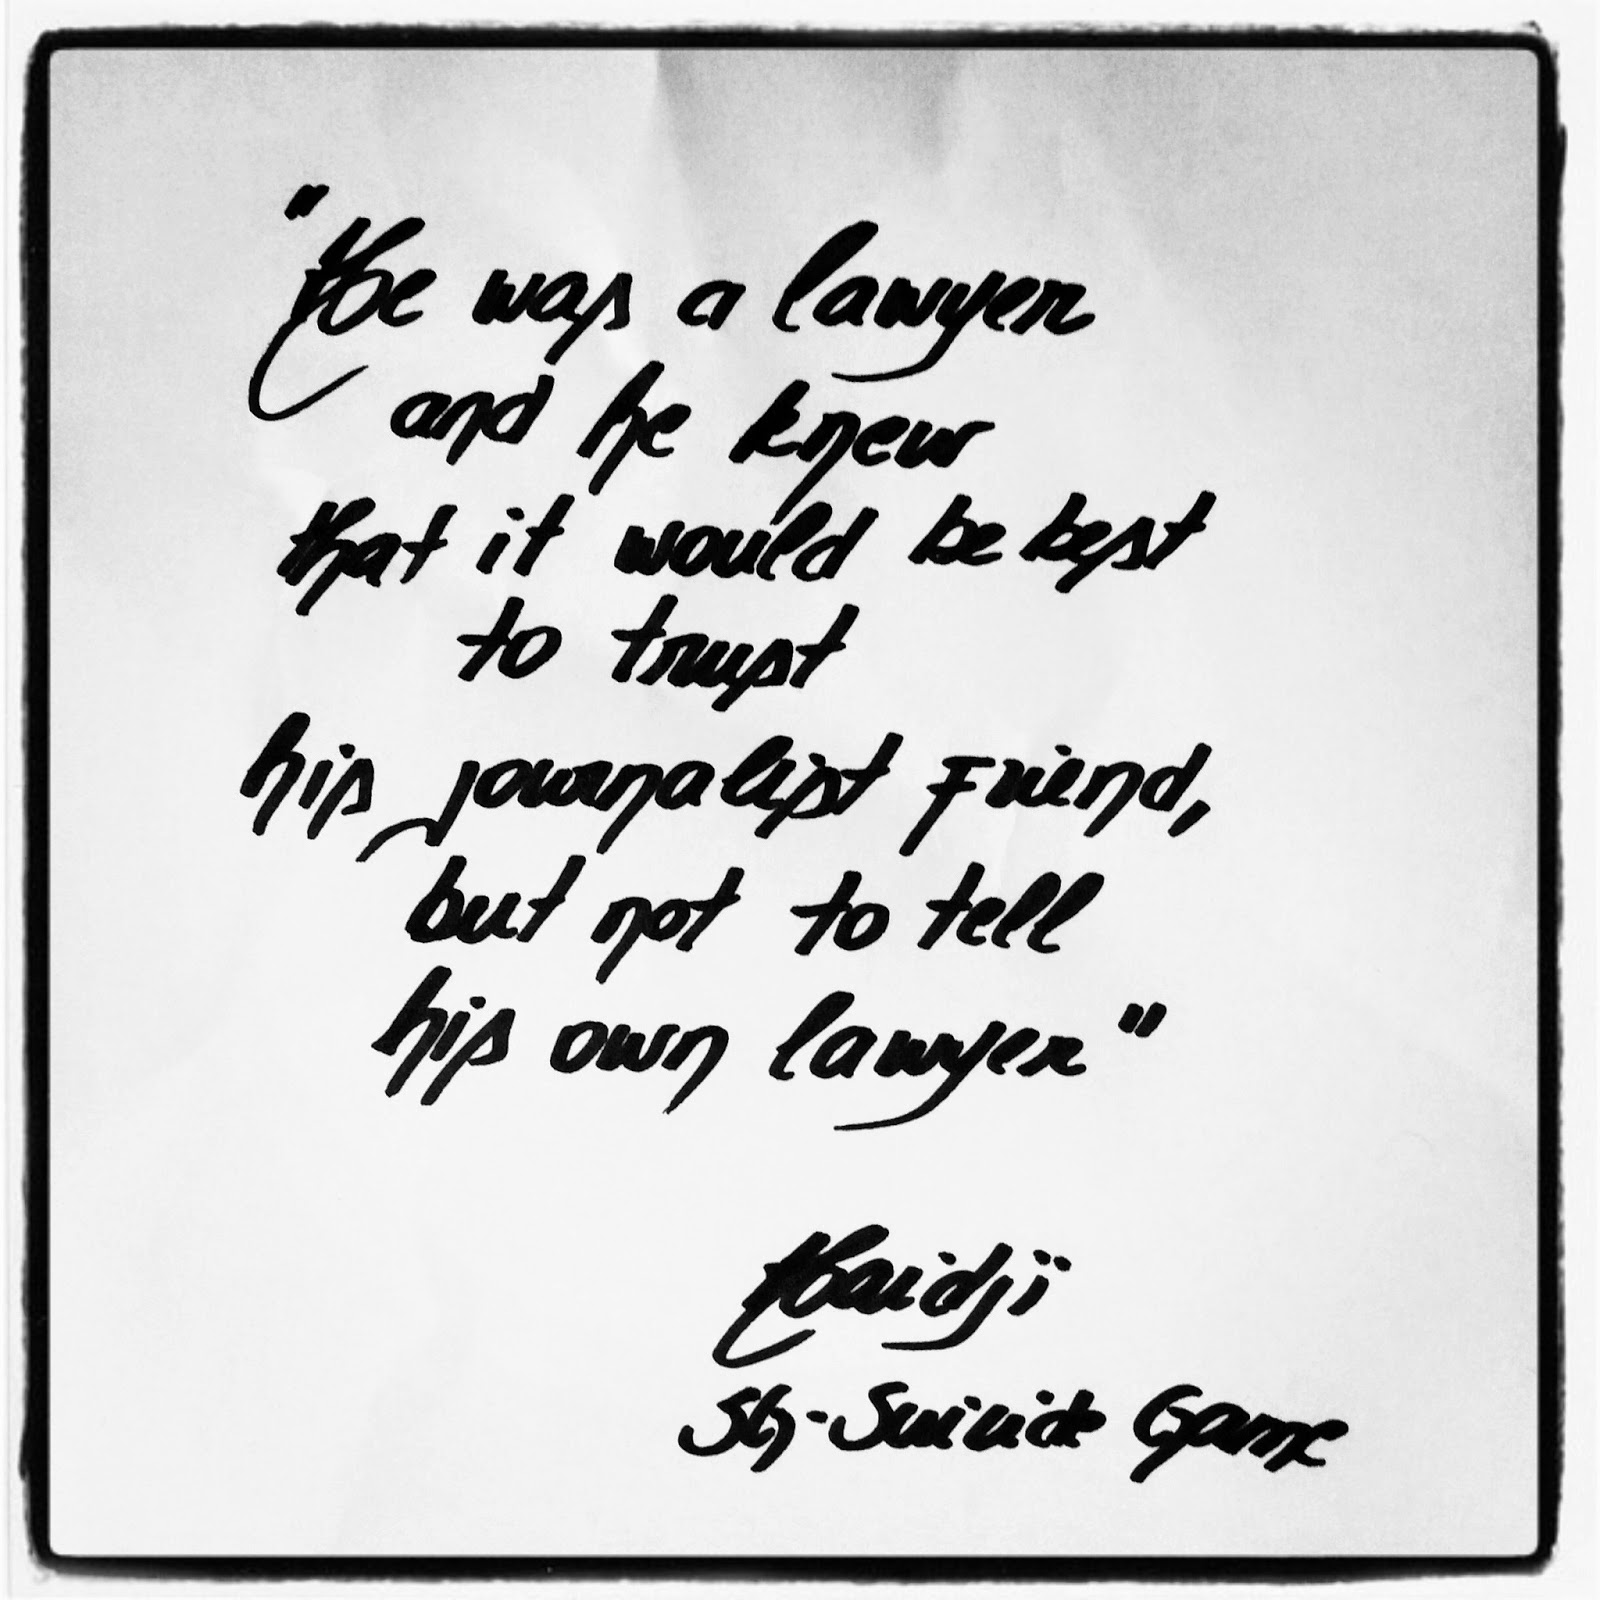 "He was a lawyer
and he knew
that it would be best
to trust
his journalist Friend,
but not to tell
his own lawyer"
Haidji
SG-Suicide Game